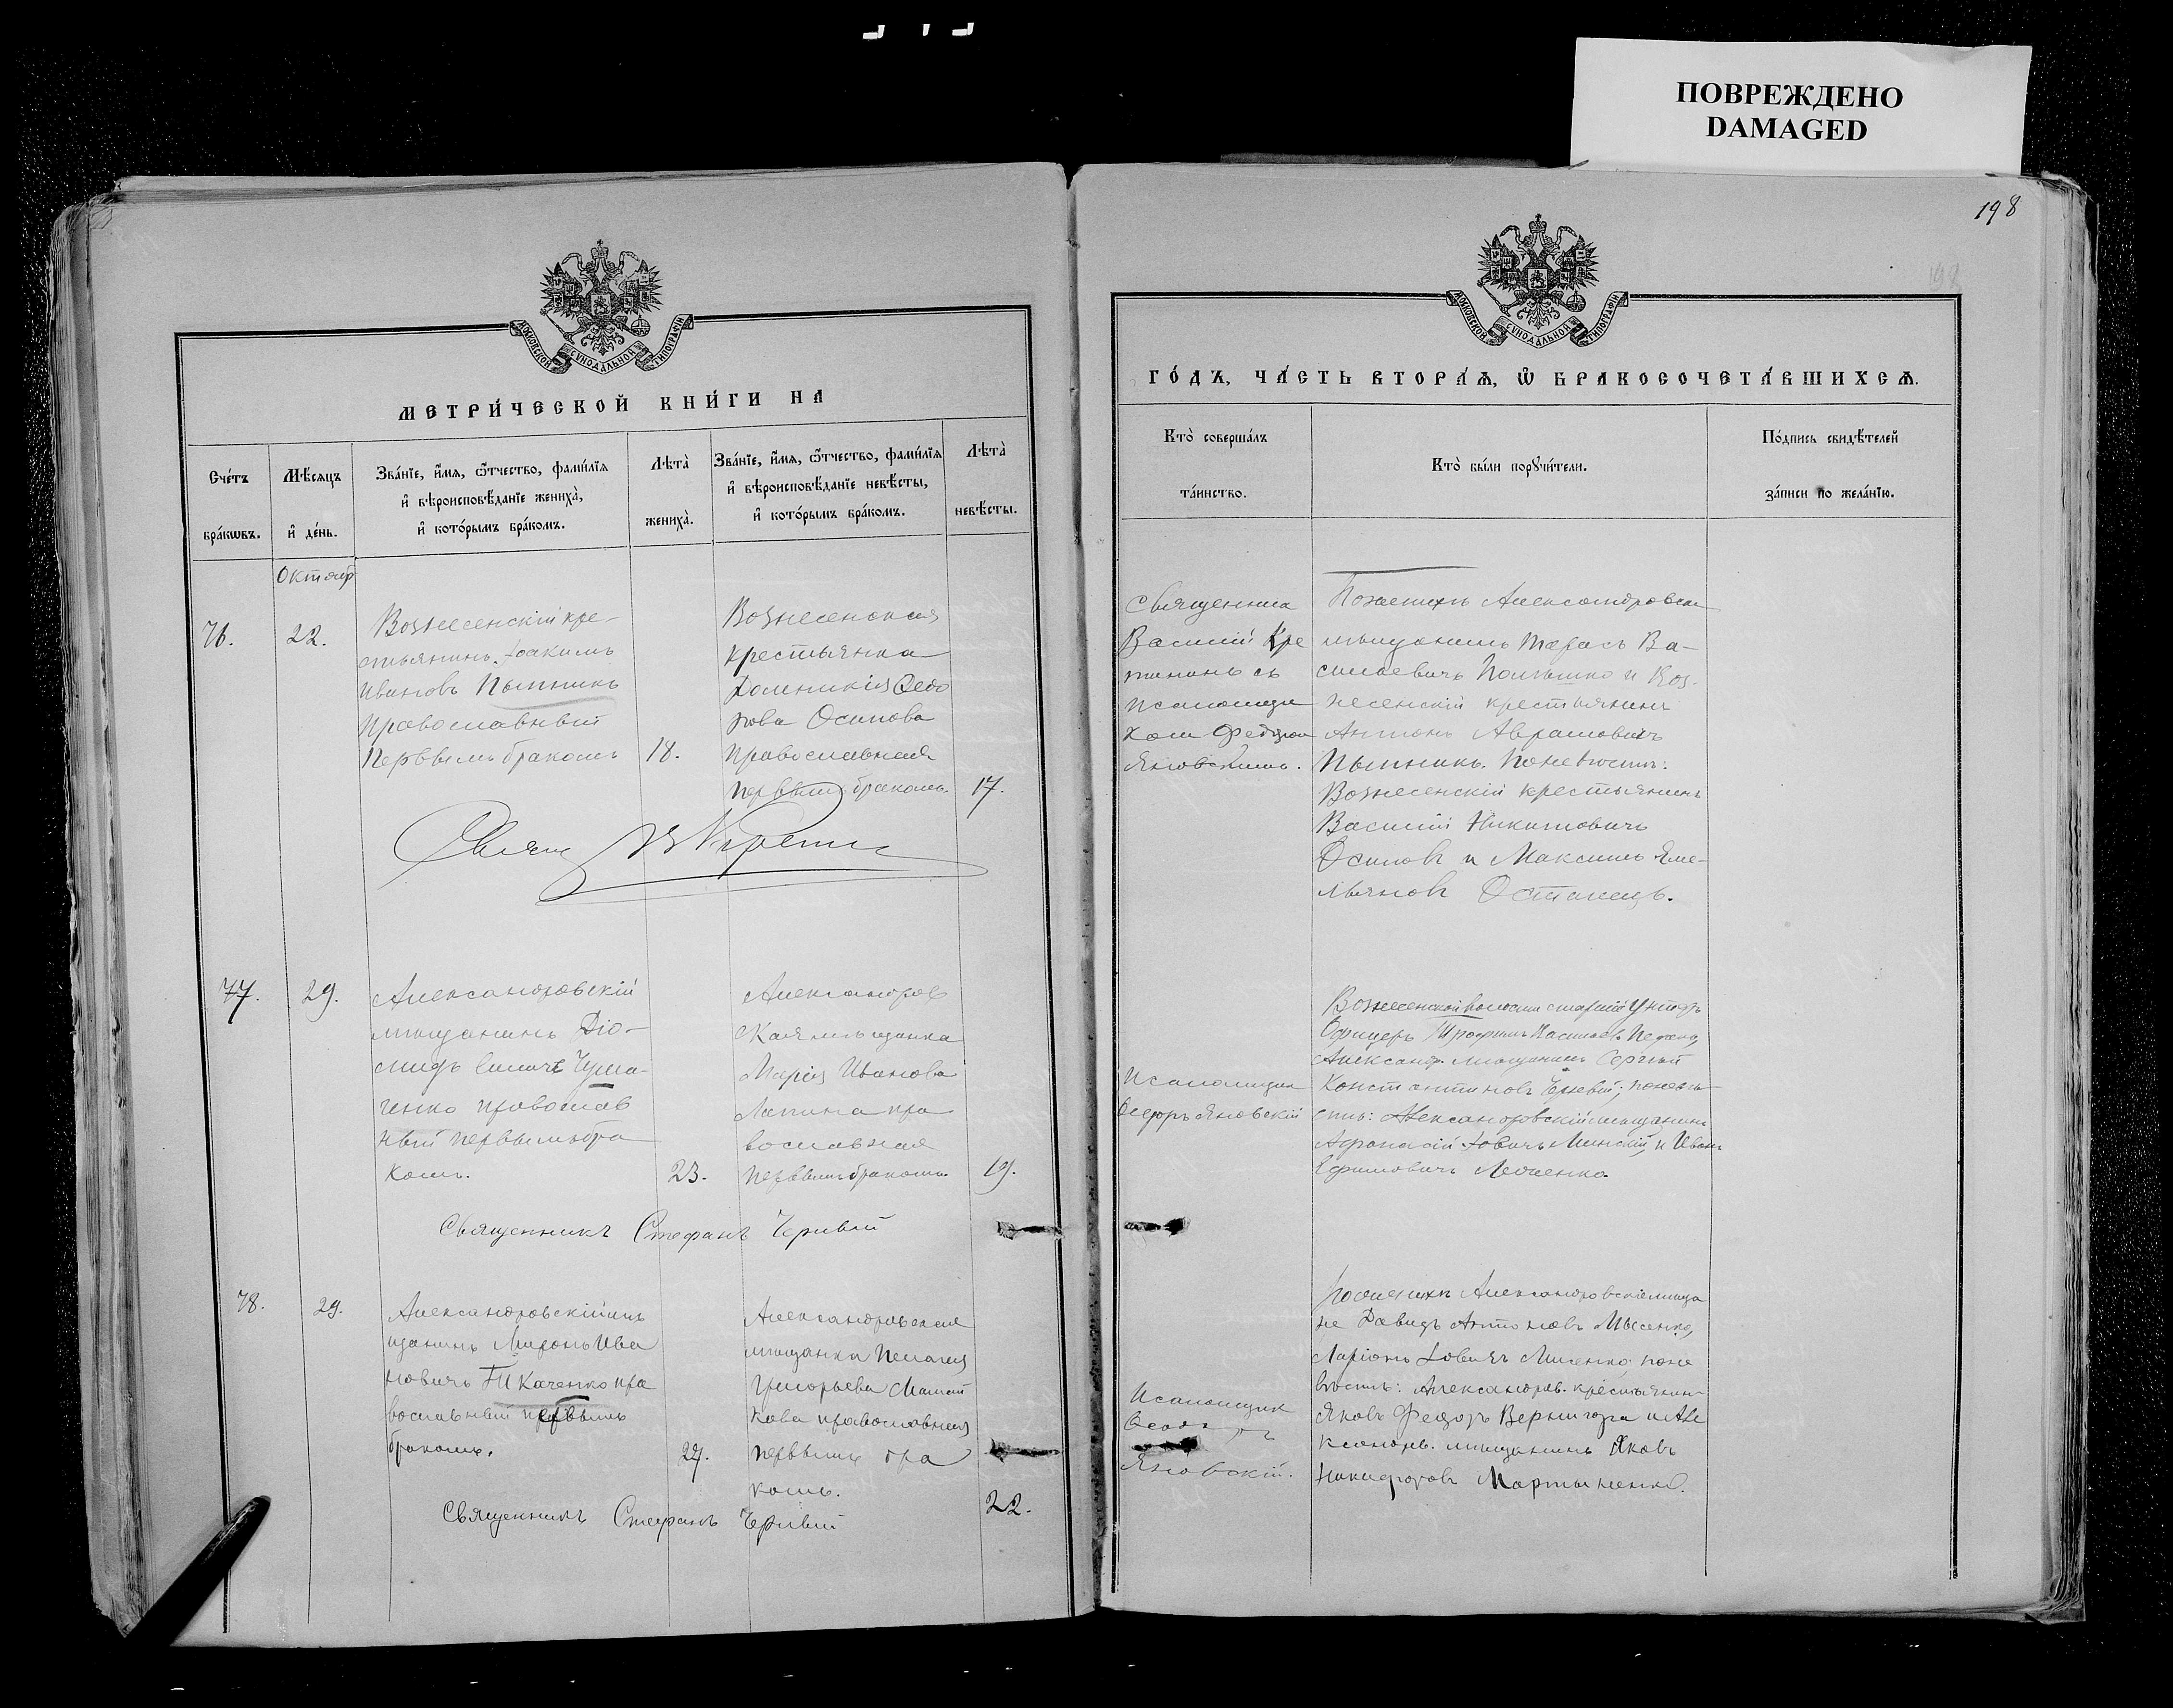 ПОВРЕЖДЕНО
DAMAGED
198
МОСКОВСКОЙ СѴНОДАЛЬНОЙ ТИПОГРАФІИ
МЕТРИ́ЧЕСКОЙ КНИ́ГИ НА
Сче́тъ бра́кѡвъ.
Мѣ́сяцъ и҆ де́нь.
Зва́нїе, и҆́мѧ, ѻ҆́тчество, фами́лїѧ
и҆ вѣроисповѣ́данїе жениха̀,
и҆ кото́рымъ бра́комъ.
Лѣта̀ жениха̀.
Зва́нїе, и҆́мѧ, ѻ҆́тчество, фами́лїѧ
и҆ вѣроисповѣ́данїе невѣ́сты,
и҆ кото́рымъ бра́комъ.
Лѣта̀ невѣ́сты.
Октябр
76.
22.
Вознесенскій кре-
стьянинъ Іоакимъ
Ивановъ Пытникъ
православный
Первымъ бракомъ
18.
Вознесенская
крестьянка
Домникія Ѳедо
рова Осипова
православная
первымъ бракомъ.
17.
Свящ В Кретин
77.
29.
Александровскій
мѣщанинъ Діо-
мидъ Чума-
ченко православ
ный первымъ бра
комъ.
23.
Александров
ская мѣщанка
Марія Иванова
Лапина пра
вославная
первымъ бракомъ.
19.
Священникъ Стефанъ Чернвій
78.
29.
Александровскій мѣ
щанинъ Миронъ Ива
новичъ Ткаченко пра
вославный первымъ
бракомъ.
27.
Александровская
мѣщанка Пелагея
Григорьева
кова православная
первымъ бра
комъ.
22.
Священникъ Стефанъ Чернвій
МОСКОВСКОЙ СѴНОДАЛЬНОЙ ТИПОГРАФІИ
ГО́ДЪ, ЧА́СТЬ ВТОРА́Ѧ, Ѽ БРАКОСОЧЕТА́ВШИХСѦ.
Кто̀ соверша́лъ та́инство.
Кто̀ бы́ли порꙋчи́тели.
По́дпись свидѣ́телей
за́писи по жела́нїю.
Священник
Василій Кре
тининъ съ
псаломщи
ком Федором
Яновскимъ.
По женихѣ Александровскій
мѣщанинъ Тарасъ Ва-
сильевичъ и Воз-
несенскій крестьянинъ
Антонъ Авраамовичъ
Пытникъ. По невѣстѣ:
Вознесенскій крестьянинъ
Василій Никитовичъ
Осиповъ и Максимъ Яме-
льяновъ Останецъ.
Псаломщик
Ѳедоръ Яновскій
Вознесенской волости старшій Унтеръ
Офицеръ Трофимъ
Александр. мѣщанинъ Сергѣй
Константиновъ по невѣ-
стѣ: Александровскій мѣщанинъ
Афанасій Іовичъ Минскій и Иванъ
Ефимовичъ
Псаломщик
Яновскій.
По женихѣ Александровскіе мѣща
не Давидъ Антоновъ
Ларіонъ Іовичъ по не
вѣстѣ: Александров. крестьянин
Яковъ Федоръ Вернигора и Але
ксандр. мѣщанинъ Яковъ
Никифоровъ Мартыненко.